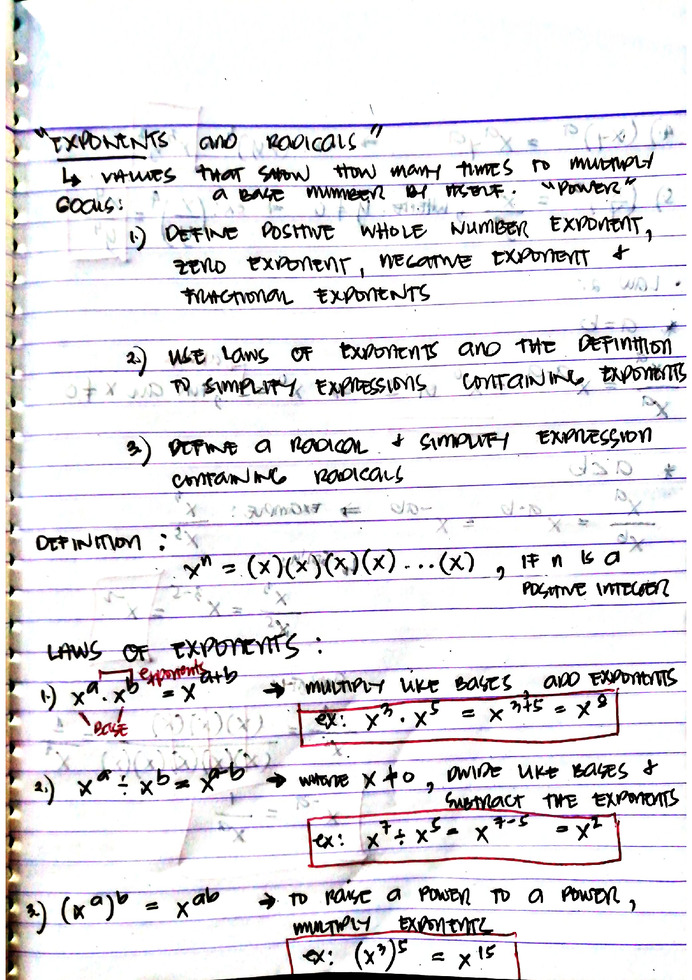 "EXPONENTS and RADICALS"
↳ VALUES THAT SHOW HOW MANY TIMES TO MULTIPLY
a BASE NUMBER BY ITSELF. "POWER"
GOALS:
1.) DEFINE POSITIVE WHOLE NUMBER EXPONENT,
ZERO EXPONENT, NEGATIVE EXPONENT &
FRACTIONAL EXPONENTS
2.) USE LAWS OF EXPONENTS AND THE DEFINITION
TO SIMPLIFY EXPRESSIONS CONTAINING EXPONENTS
3.) DEFINE a RADICAL & SIMPLIFY EXPRESSION
CONTAINING RADICALS
DEFINITION :
xⁿ = (x)(x)(x)(x)...(x) , IF n IS a
POSITIVE INTEGER
LAWS OF EXPONENTS :
exponents
1.) xᵃ · xᵇ = xᵃ⁺ᵇ → MULTIPLY LIKE BASES, ADD EXPONENTS
BASE
ex: x³ · x⁵ = x³⁺⁵ = x⁸
2.) xᵃ ÷ xᵇ = xᵃ⁻ᵇ → WHERE x ≠ 0, DIVIDE LIKE BASES &
SUBTRACT THE EXPONENTS
ex: x⁷ ÷ x⁵ = x⁷⁻⁵ = x²
3.) (xᵃ)ᵇ = xᵃᵇ → TO RAISE a POWER TO a POWER,
MULTIPLY EXPONENTS
ex: (x³)⁵ = x¹⁵